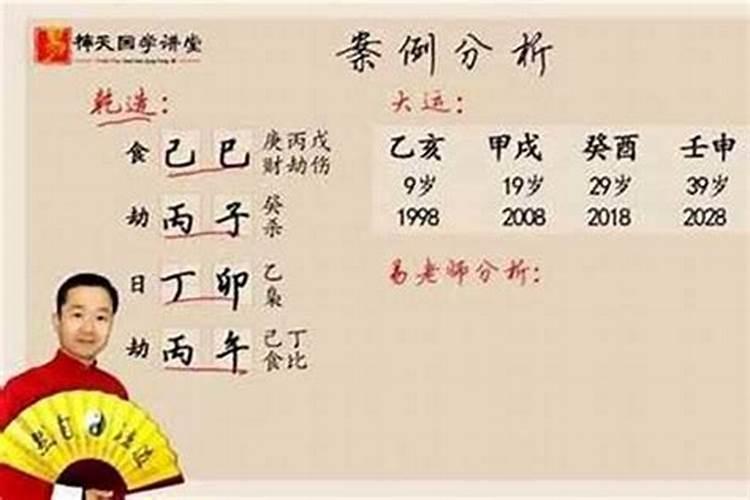 易 神天国学讲堂
案例分析
乾造：
食 己 巳 庚丙戊
财劫伤
劫 丙 子 癸
杀
日 丁 卯 乙
枭
劫 丙 午 己丁
食比
大运：
乙亥 甲戌 癸酉 壬申
9岁 19岁 29岁 39岁
1998 2008 2018 2028
易老师分析：